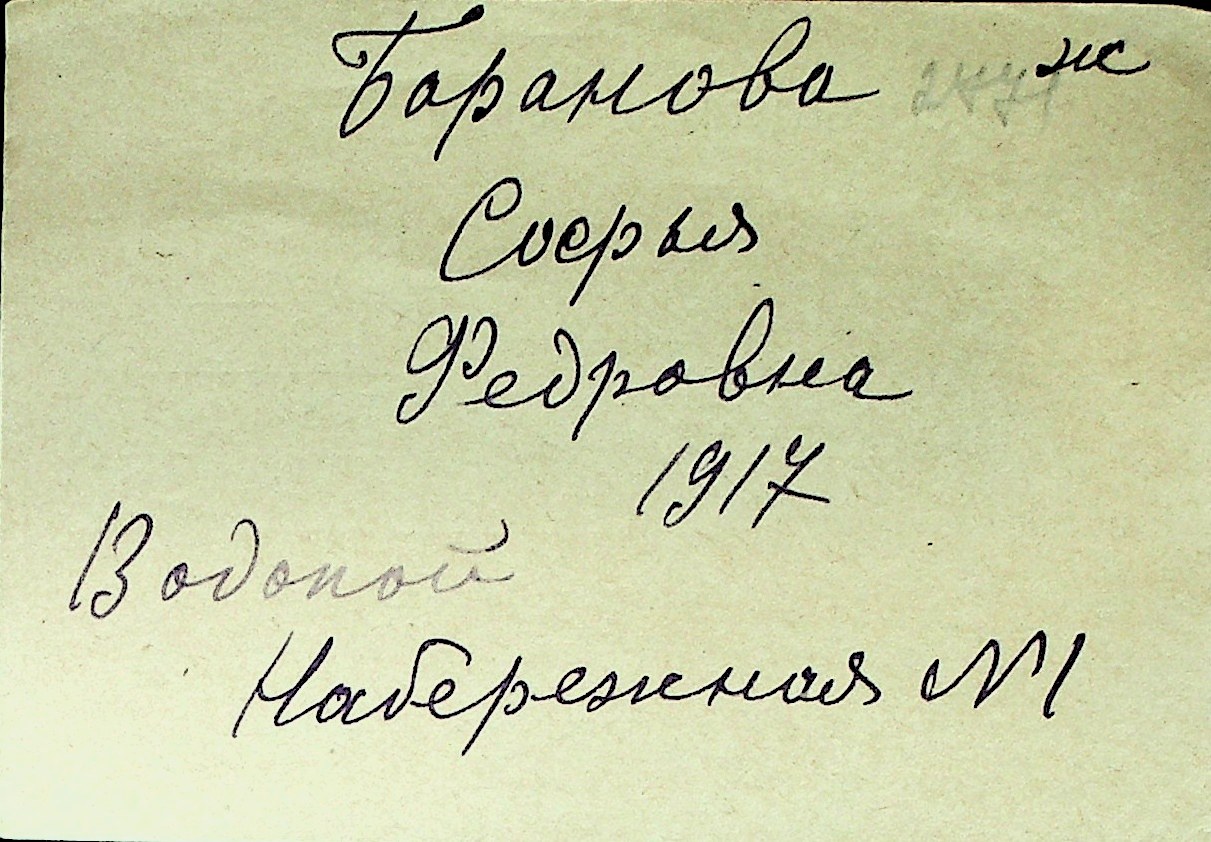 Баранова ж
Софья
Федровна
1917
Водопой
Набережная №1